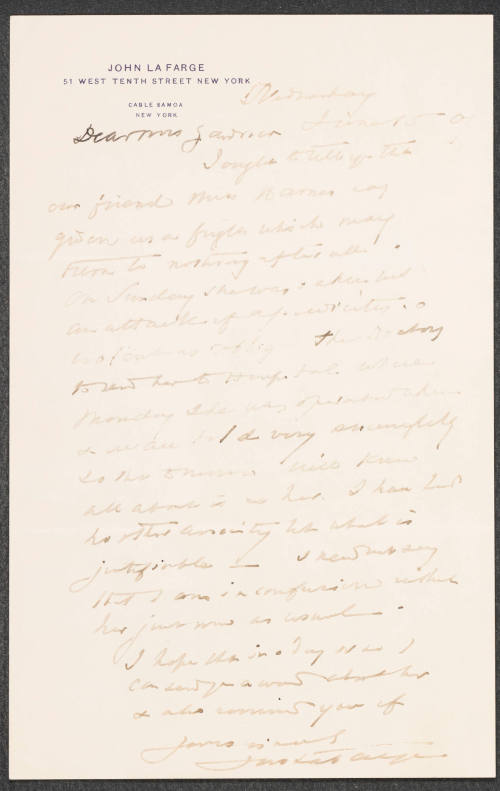 JOHN LA FARGE
51 WEST TENTH STREET NEW YORK
CABLE SAMOA
NEW YORK
Wednesday
Dear Mrs Gardner
I ought to tell you that
our friend Miss Barnes has
given us a fright which may
turn to nothing after all.
On Sunday she was
an attack of appendicitis. so
violent as the doctors
to send her to Hospital where
Monday she was operated upon
& we are told very successfully
all about it as her. I have had
no other anxiety but what is
justifiable — I need not say
that I am in confusion without
her just now as usual.
I hope that in a day or so I
can send you a word about her
& also remind you of
yours as much
John La Farge